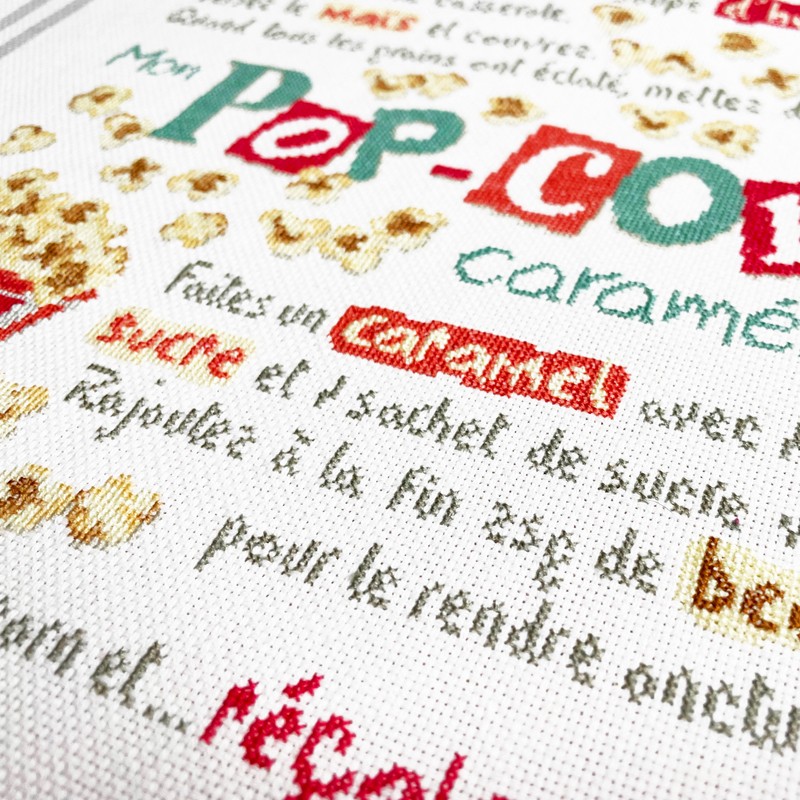 casserole.
le maïs et couvrez.
Quand tous les grains ont éclaté, mettez
Mon
POP-CO
caramé
Faites un caramel avec
sucre et 1 sachet de sucre
Rajoutez à la fin 25g de
pour le rendre onctu
et...
régal